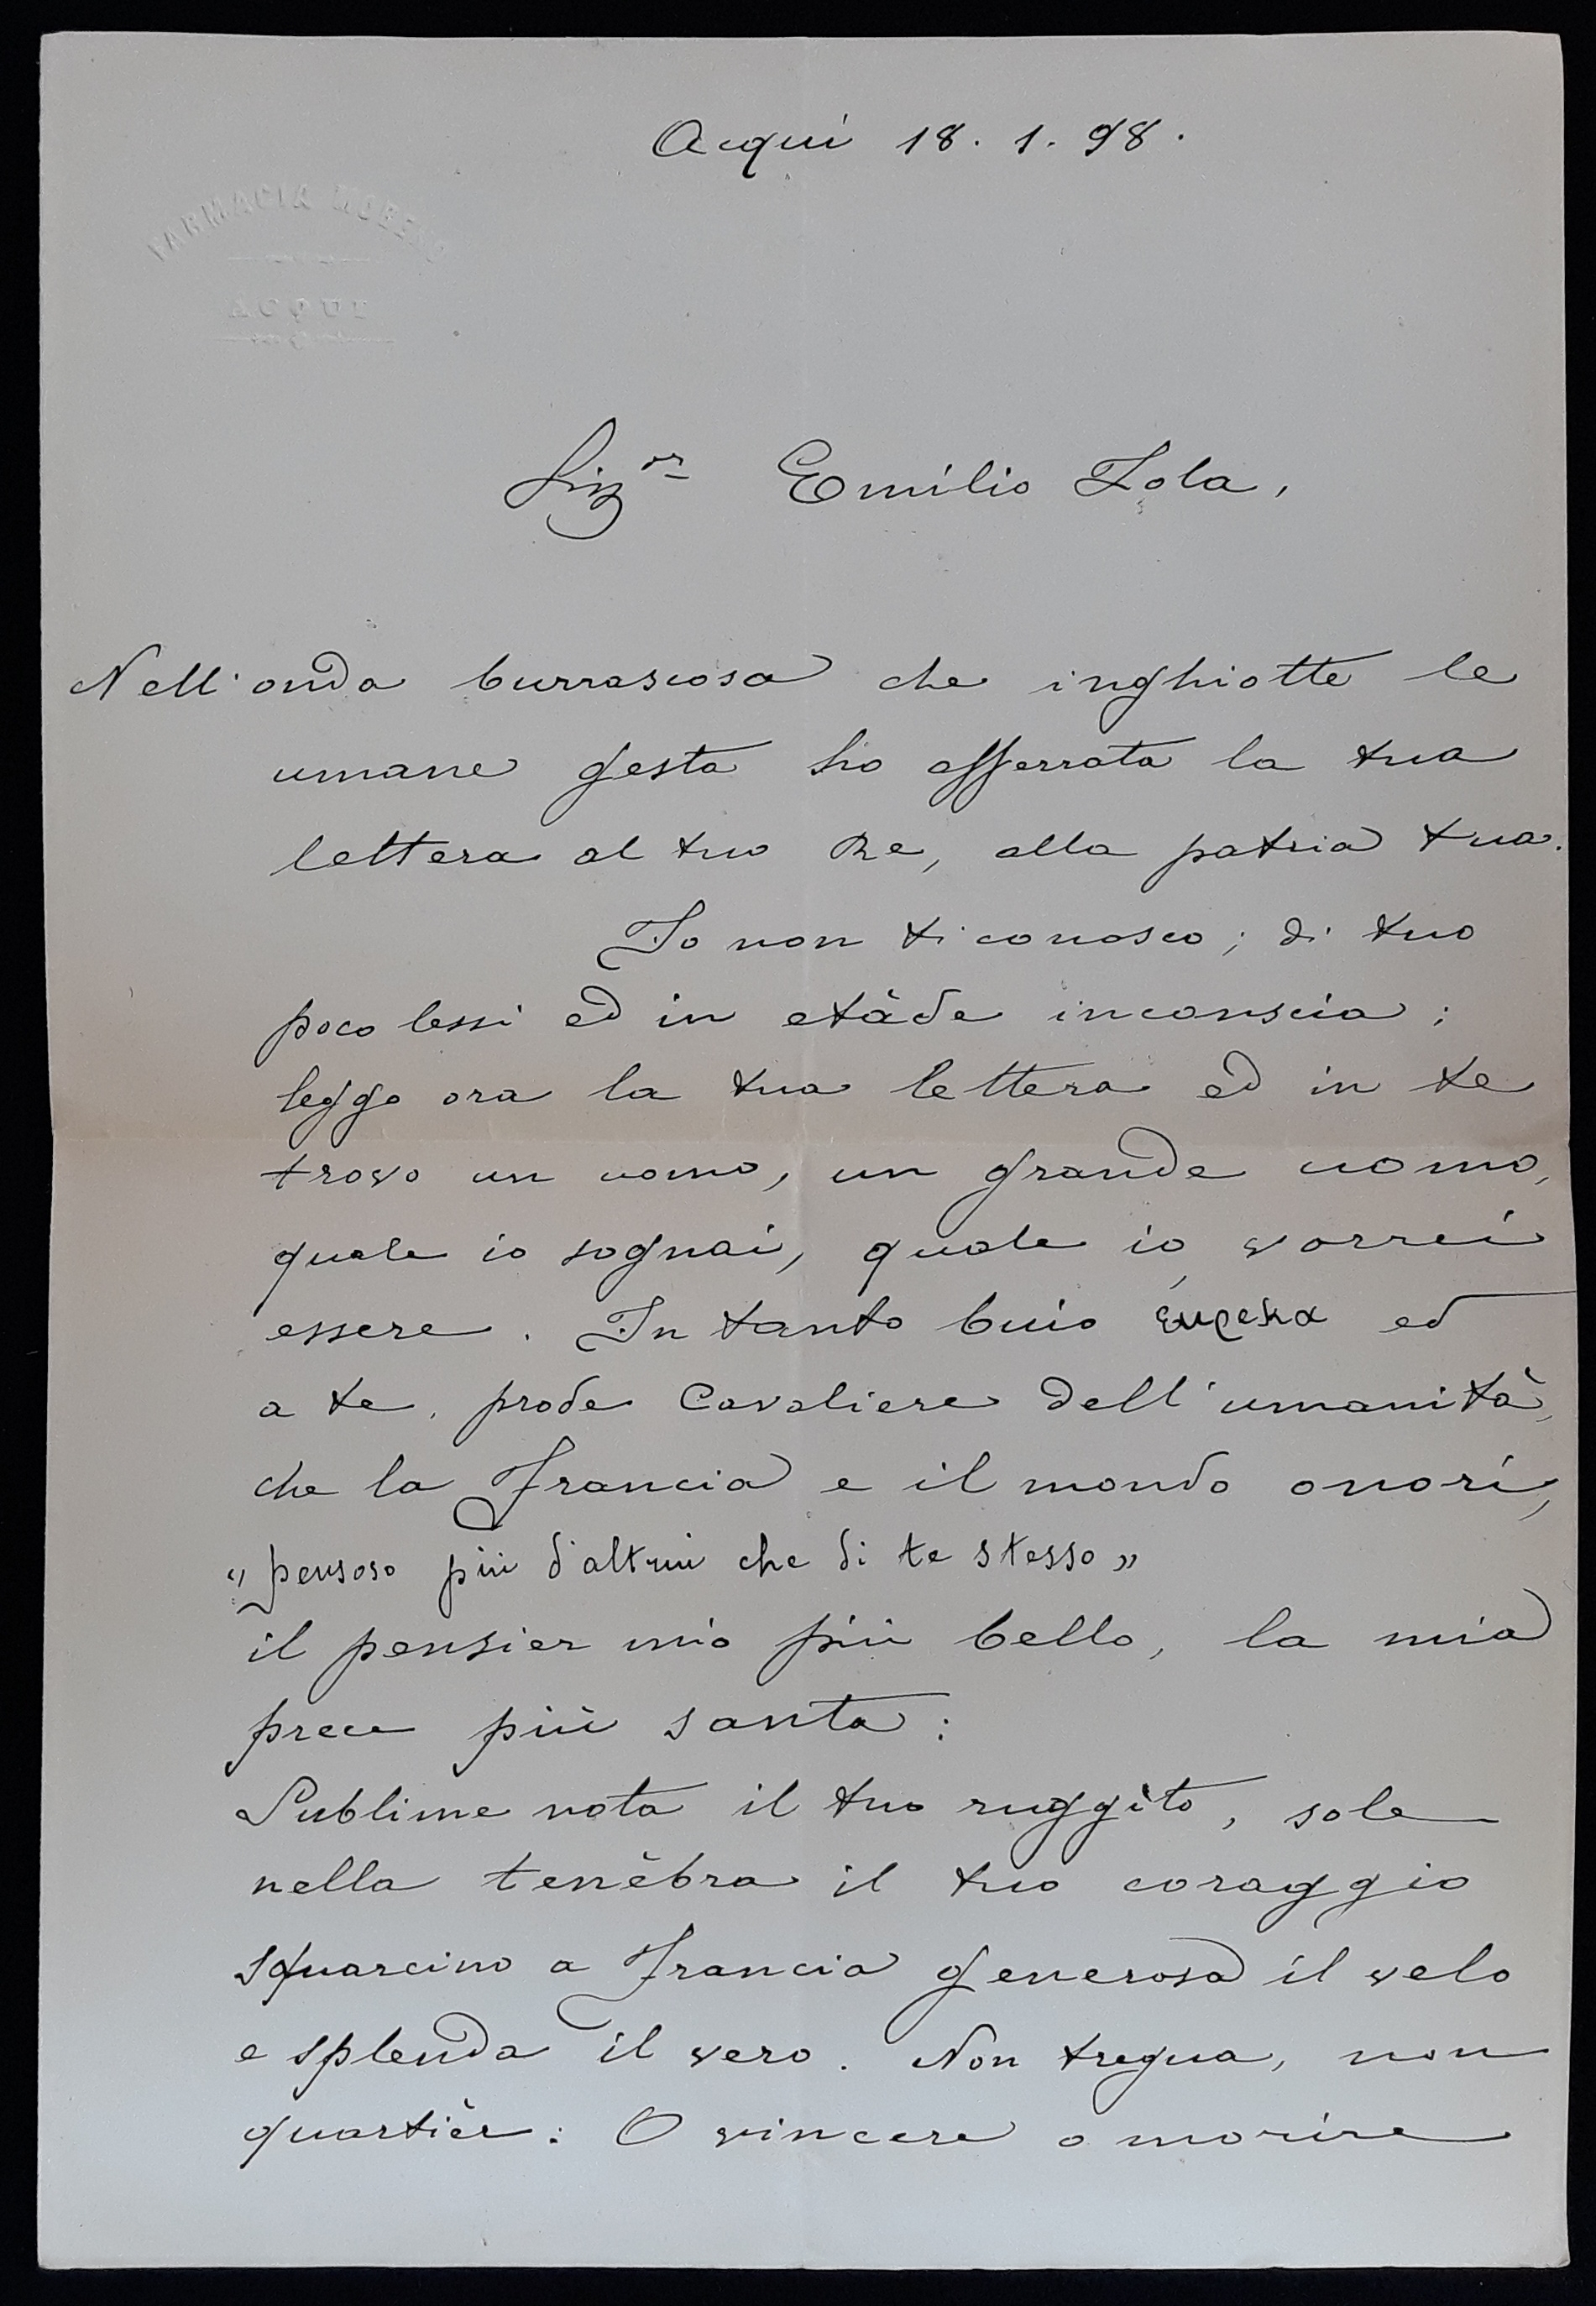 Acqui 18. 1. 98.
FARMACIA
ACQUI
Sigʳ Emilio Zola,
Nell'onda burrascosa che inghiotte le
umane gesta ho afferrata la tua
lettera al tuo Re, alla patria tua.
Io non ti conosco; di tuo
poco lessi ed in etàde inconscia;
leggo ora la tua lettera ed in te
trovo un uomo, un grande uomo,
quale io sognai, quale io vorrei
essere. In tanto buio ed
a te, prode Cavaliere dell'umanità,
che la Francia e il mondo onori,
"pensoso più d'altrui che di te stesso"
il pensier mio più bello, la mia
prece più santa:
Sublime nota il tuo ruggìto, sole
nella tenèbra il tuo coraggio
squarcino a Francia generosa il velo
e splenda il vero. Non tregua, non
quartièr: O vincere o morire